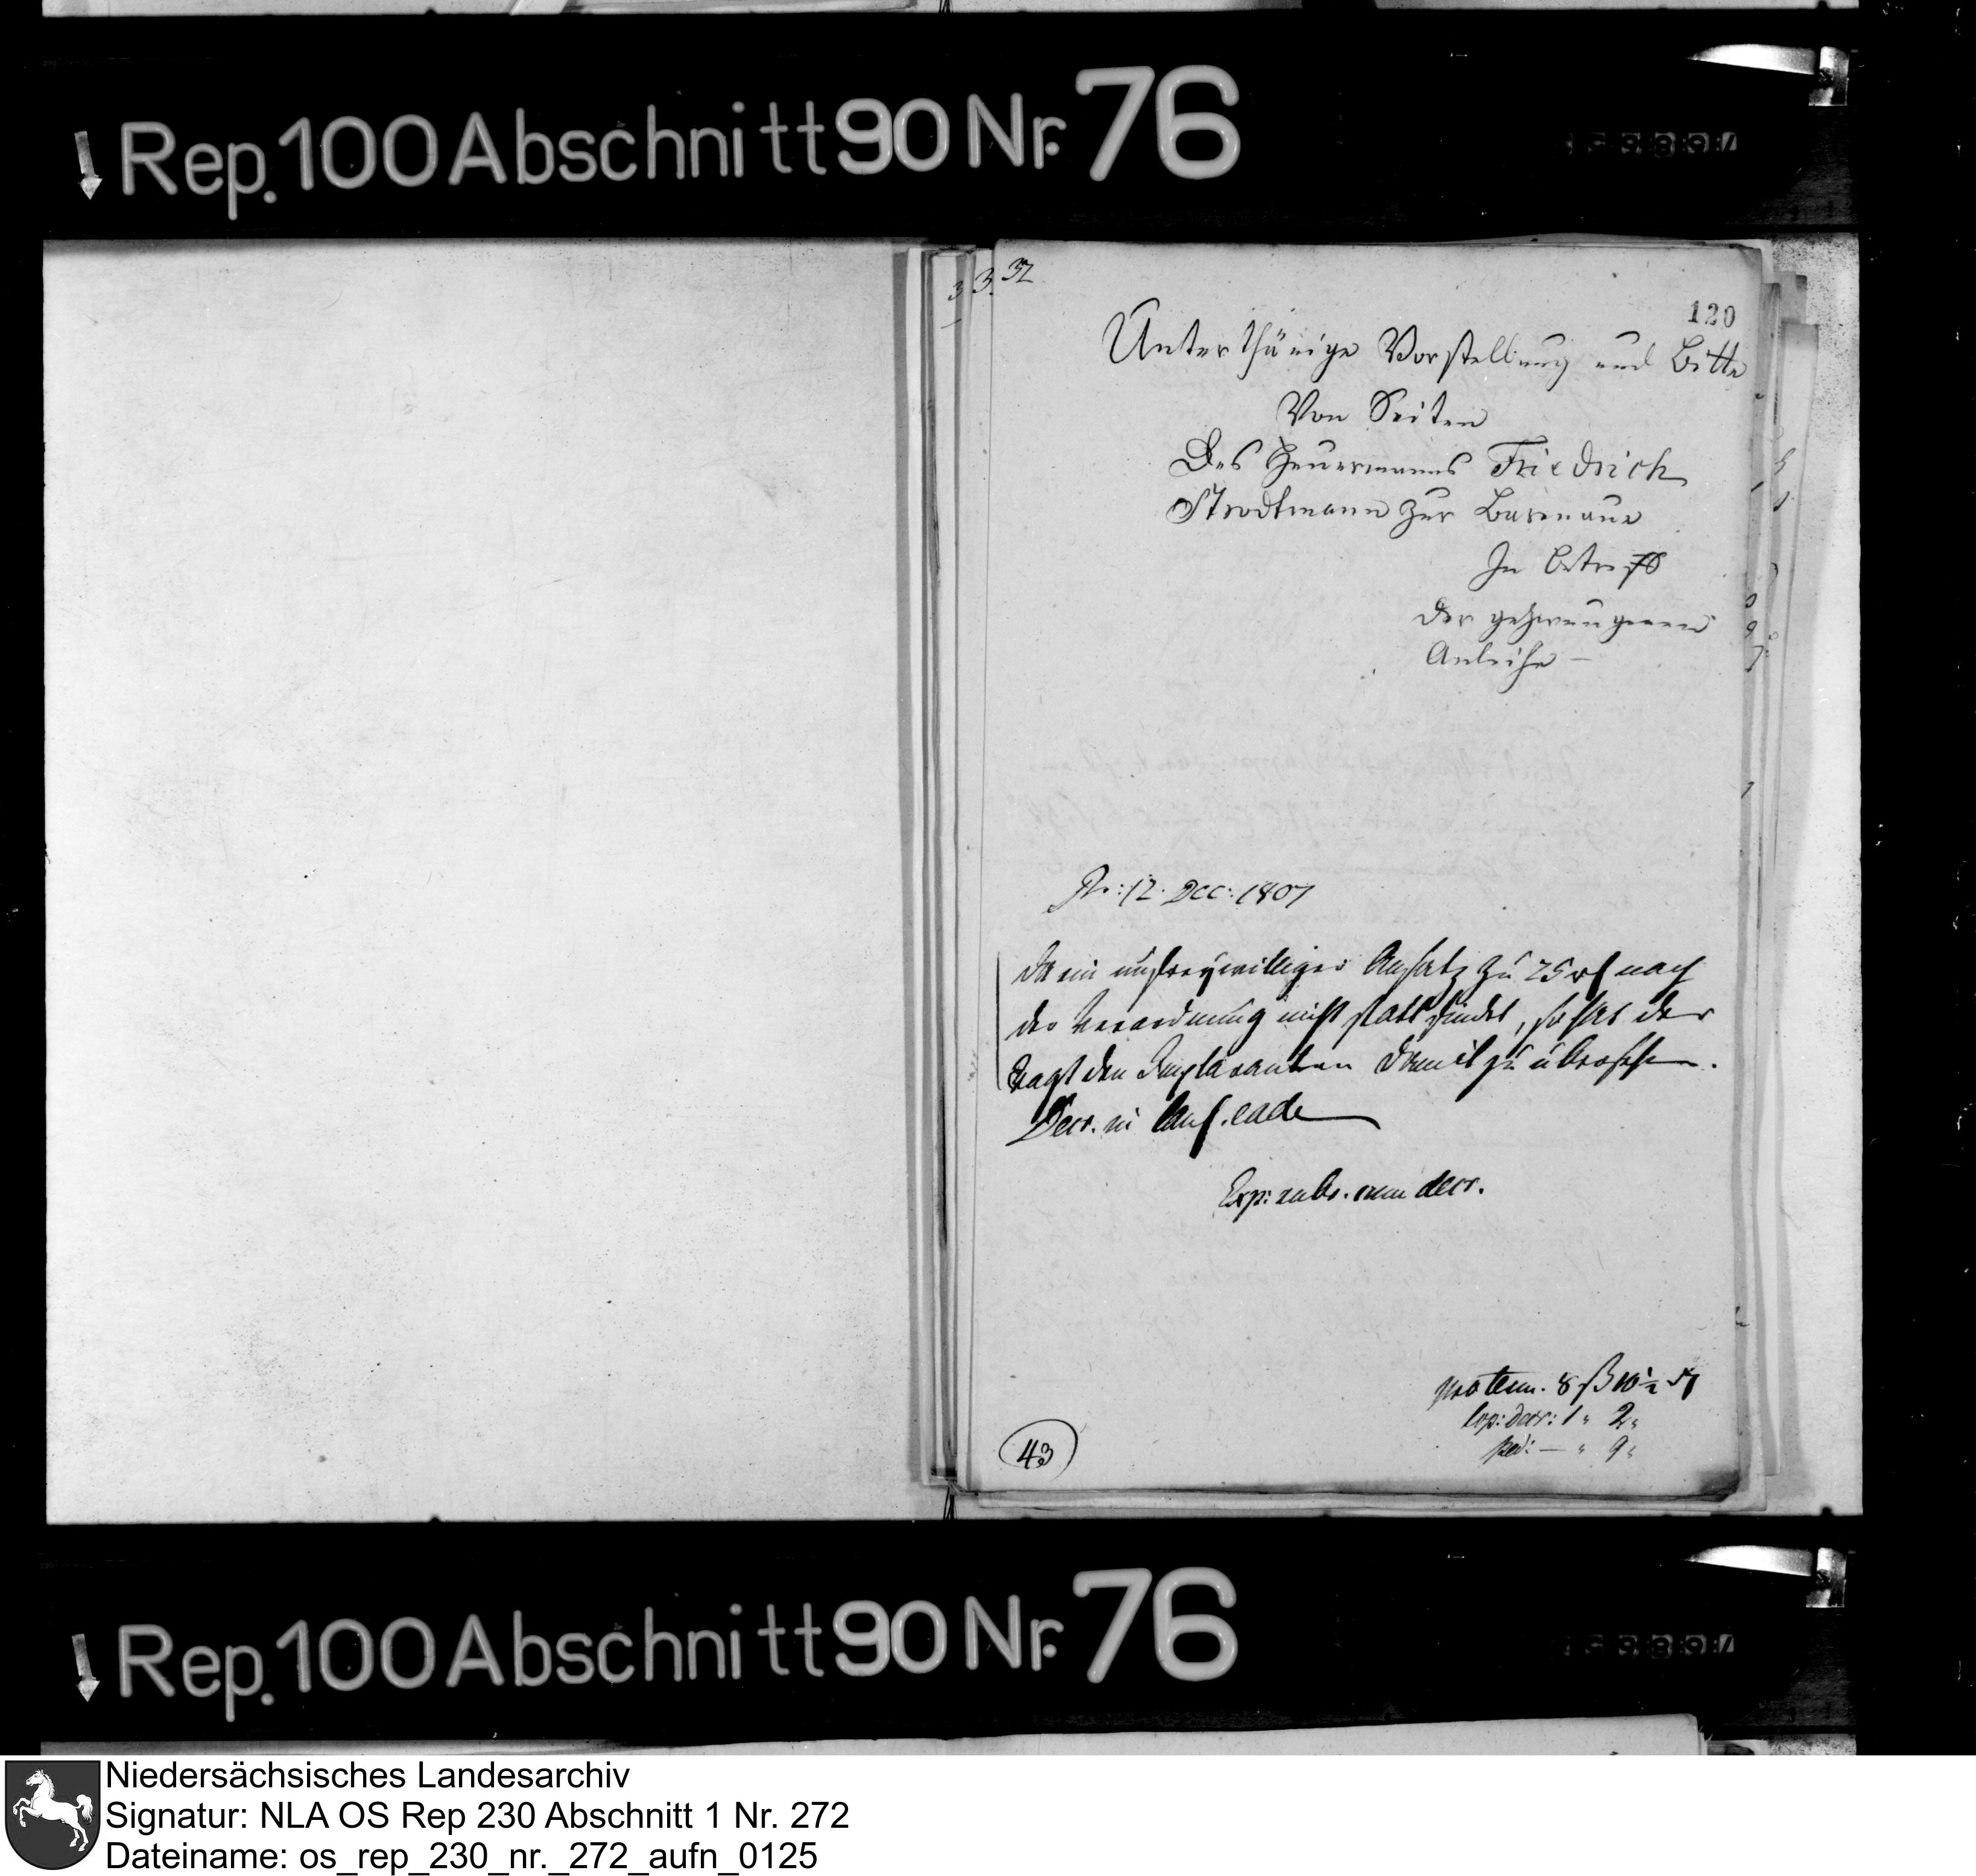 Rep. 100 Abschnitt 90 Nr. 76
37
120
Unterthänige Vorstellung und Bitte
Von Seiten
Des Heuermanns Friedrich
Strodtmann zur Barenaue
In betreff
der gezwungenen
Anleihe –
Pr: 12. Dec: 1807
Da ein unfreywilliger Ansatz zu 25 rt nach
der Verordnung nicht statt findet, so hat der
Vagt den Imploranten damit zu übersehen.
Decr. in
Exp: decr.
pro term. 8 ß 10 ½ d
Cop: decr: 1 " 2 "
ped: — " 9 "
43
Rep. 100 Abschnitt 90 Nr. 76
Niedersächsisches Landesarchiv
Signatur: NLA OS Rep 230 Abschnitt 1 Nr. 272
Dateiname: os_rep_230_nr._272_aufn_0125